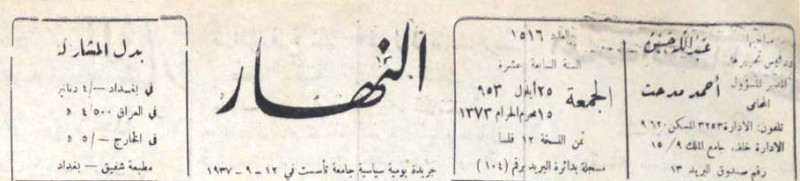 صاحبها
ورئيس تحريرها
عبد الله حسن
المدير المسؤول
المحامي
أحمد مدحت
تلفون: الادارة ٣٢٥٣ المسكن ٩٦٢٠
الادارة خلف جامع الملك ٩/١٥
رقم صندوق البريد ١٣
العدد ١٥١٦
السنة السابعة عشرة
الجمعة
٢٥ أيلول ٩٥٣
١٥ محرم الحرام ١٣٧٣
ثمن النسخة ١٢ فلسا
مسجلة بدائرة البريد برقم (١٠٤)
النهار
جريدة يومية سياسية جامعة تأسست في ١٢-٩-١٩٣٧
بدل المشاركة
في بغداد -/٤ دنانير
في العراق ٤/٥٠٠ »
في الخارج -/٥ »
مطبعة شفيق - بغداد